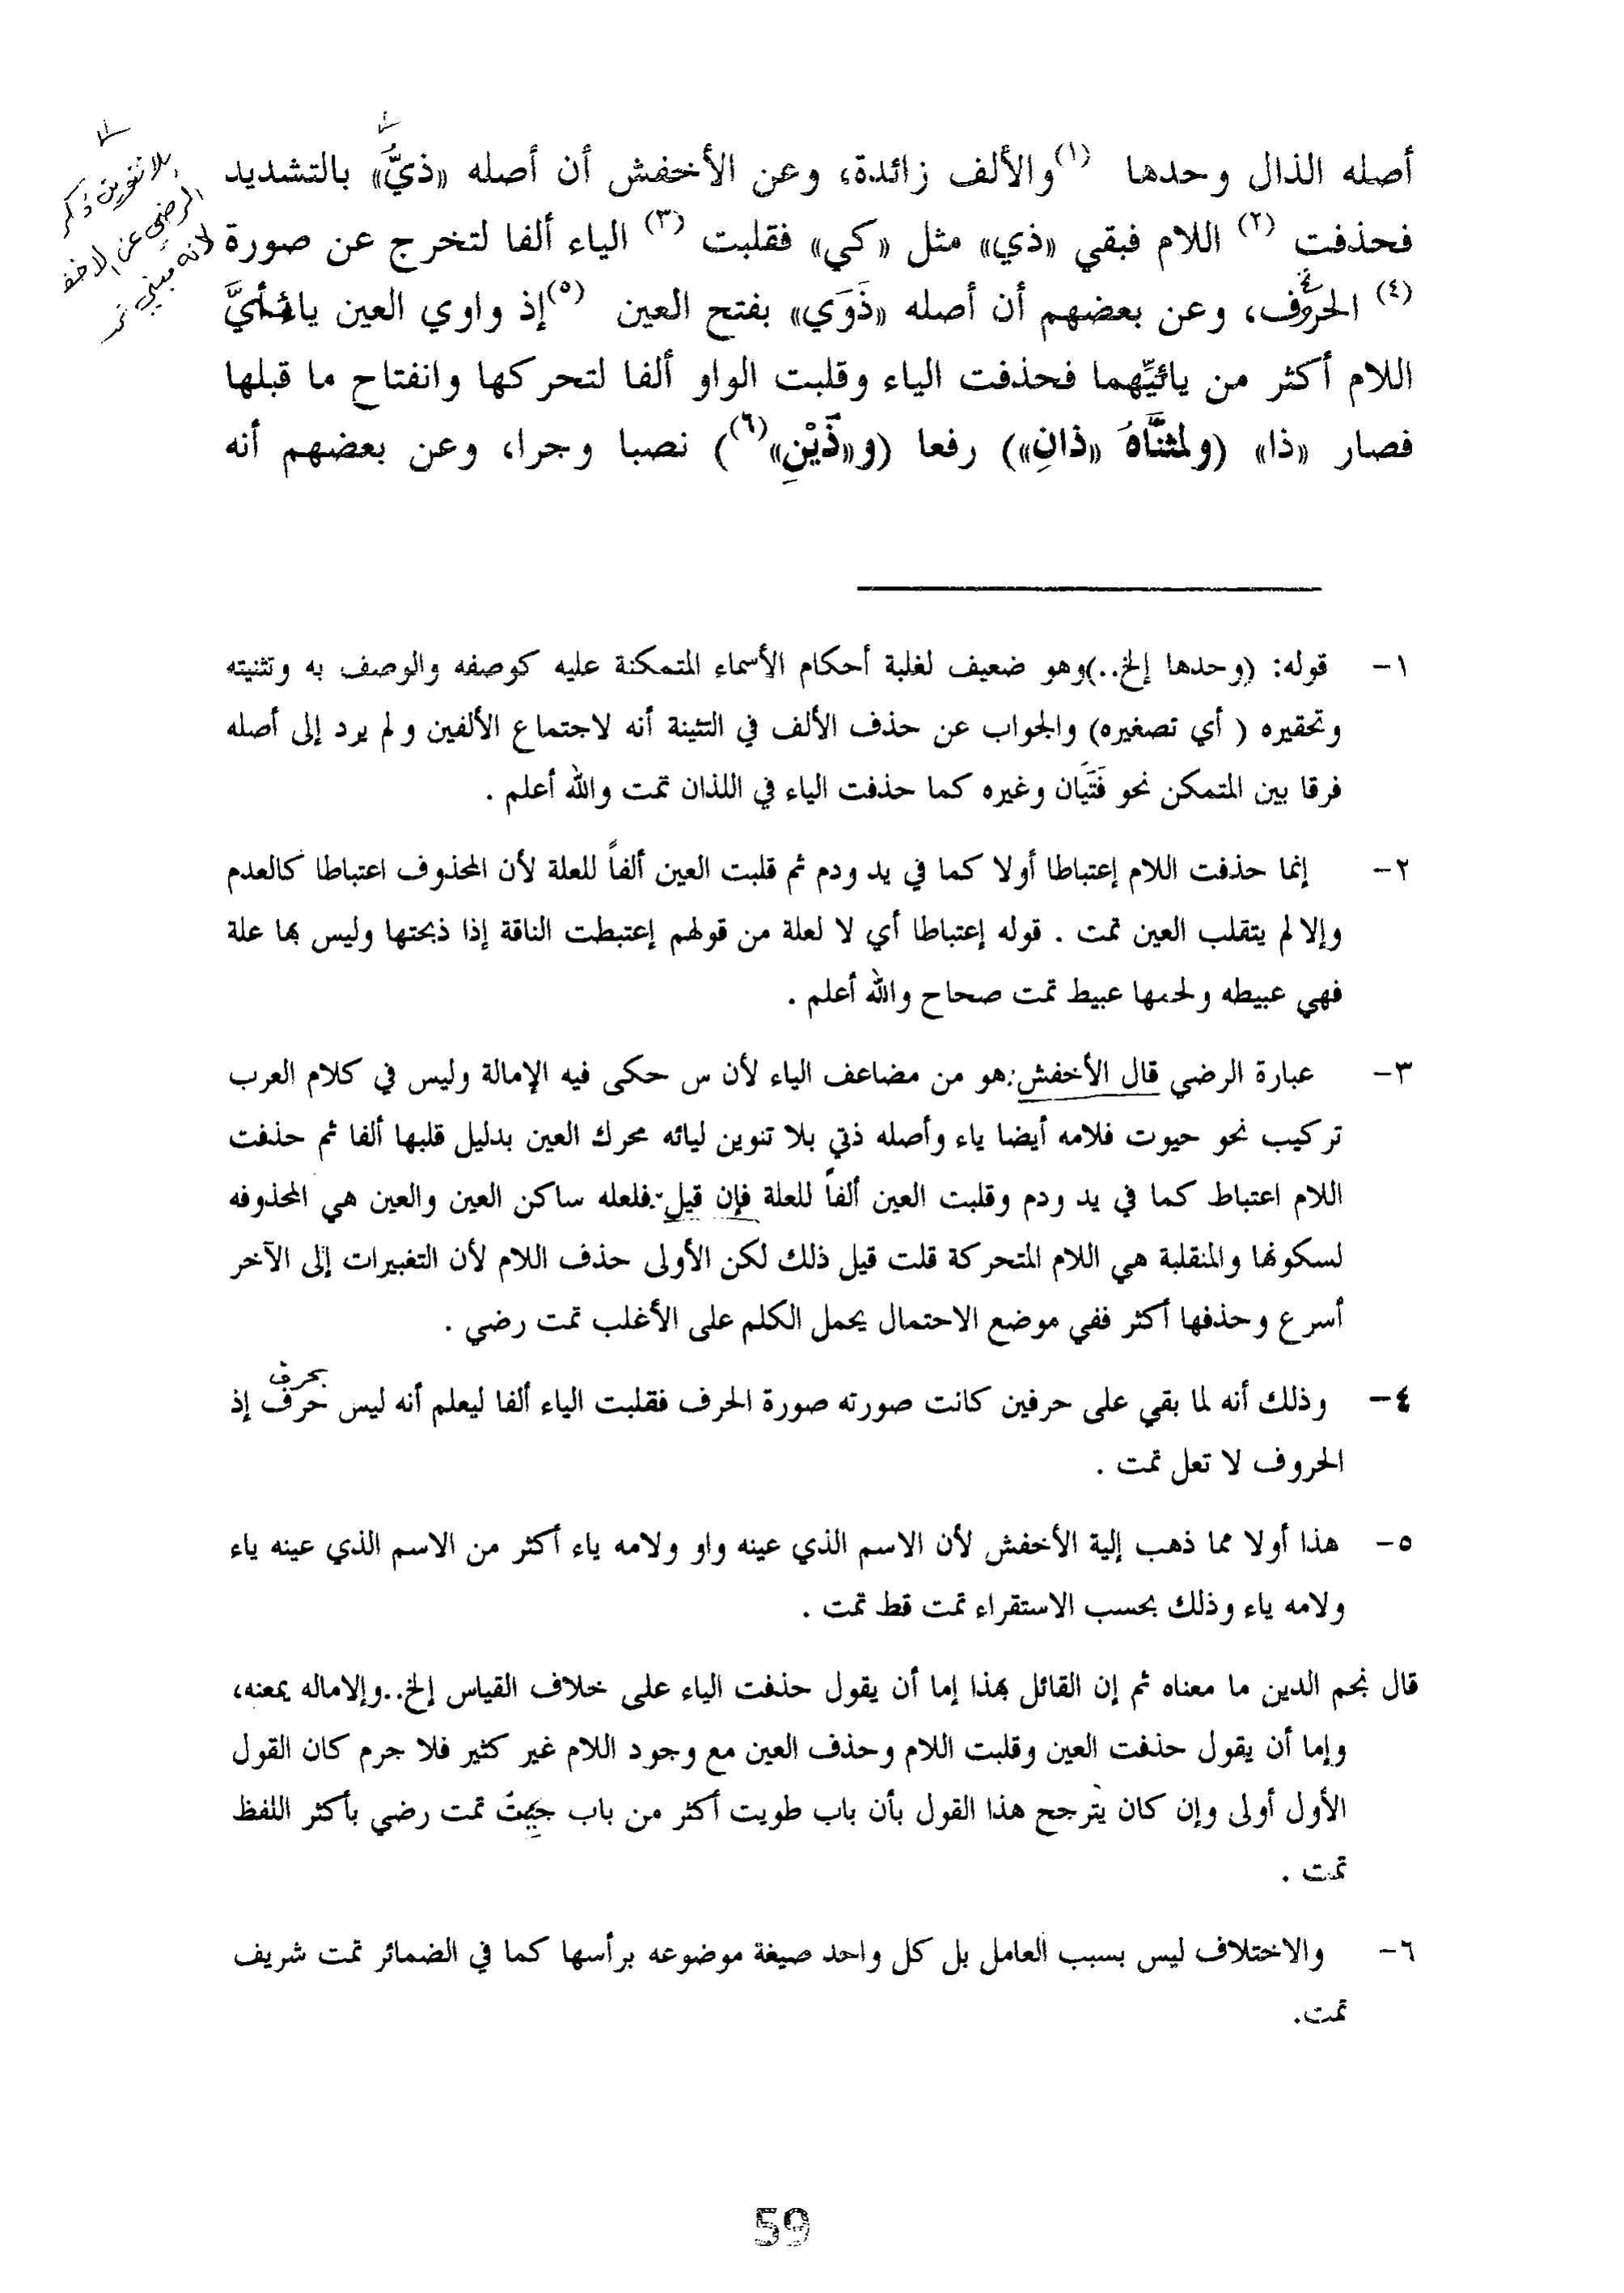 أصله الذال وحدها (١) والألف زائدة، وعن الأخفش أن أصله «ذيُّ» بالتشديد
فحذفت (٢) اللام فبقي «ذي» مثل «كي» فقلبت (٣) الياء ألفا لتخرج عن صورة
(٤) الحروف، وعن بعضهم أن أصله «ذَوَي» بفتح العين (٥) إذ واوي العين يائيَّ
اللام أكثر من يائيِّهما فحذفت الياء وقلبت الواو ألفا لتحركها وانفتاح ما قبلها
فصار «ذا» (ولمثنَّاهُ «ذانِ») رفعا (و«ذَيْنِ» (٦)) نصبا وجرا، وعن بعضهم أنه
بلا تنوين ذكر
الرضي عن الاخفش
لانه مبني تمت
١- قوله: (وحدها إلخ..)وهو ضعيف لغلبة أحكام الأسماء المتمكنة عليه كوصفه والوصف به وتثنيته
وتحقيره ( أي تصغيره) والجواب عن حذف الألف في التثينة أنه لاجتماع الألفين ولم يرد إلى أصله
فرقا بين المتمكن نحو فَتَيَان وغيره كما حذفت الياء في اللذان تمت والله أعلم .
٢- إنما حذفت اللام إعتباطا أولا كما في يد ودم ثم قلبت العين ألفاً للعلة لأن المحذوف اعتباطا كالعدم
وإلا لم يتقلب العين تمت . قوله إعتباطا أي لا لعلة من قولهم إعتبطت الناقة إذا ذبحتها وليس بها علة
فهي عبيطه ولحمها عبيط تمت صحاح والله أعلم .
٣- عبارة الرضي قال الأخفش: هو من مضاعف الياء لأن س حكى فيه الإمالة وليس في كلام العرب
تركيب نحو حيوت فلامه أيضا ياء وأصله ذيي بلا تنوين ليائه محرك العين بدليل قلبها ألفا ثم حذفت
اللام اعتباط كما في يد ودم وقلبت العين ألفاً للعلة فإن قيل: فلعله ساكن العين والعين هي المحذوفه
لسكونها والمنقلبة هي اللام المتحركة قلت قيل ذلك لكن الأولى حذف اللام لأن التغييرات إلى الآخر
أسرع وحذفها أكثر ففي موضع الاحتمال يحمل الكلم على الأغلب تمت رضي .
بحرف
٤- وذلك أنه لما بقي على حرفين كانت صورته صورة الحرف فقلبت الياء ألفا ليعلم أنه ليس حرف إذ
الحروف لا تعل تمت .
٥- هذا أولا مما ذهب إلية الأخفش لأن الاسم الذي عينه واو ولامه ياء أكثر من الاسم الذي عينه ياء
ولامه ياء وذلك بحسب الاستقراء تمت قط تمت .
قال نجم الدين ما معناه ثم إن القائل بهذا إما أن يقول حذفت الياء على خلاف القياس إلخ..وإلاماله يمعنه،
وإما أن يقول حذفت العين وقلبت اللام وحذف العين مع وجود اللام غير كثير فلا جرم كان القول
الأول أولى وإن كان يترجح هذا القول بأن باب طويت أكثر من باب حييتُ تمت رضي بأكثر اللفظ
تمت .
٦- والاختلاف ليس بسبب العامل بل كل واحد صيغة موضوعه برأسها كما في الضمائر تمت شريف
تمت.
59